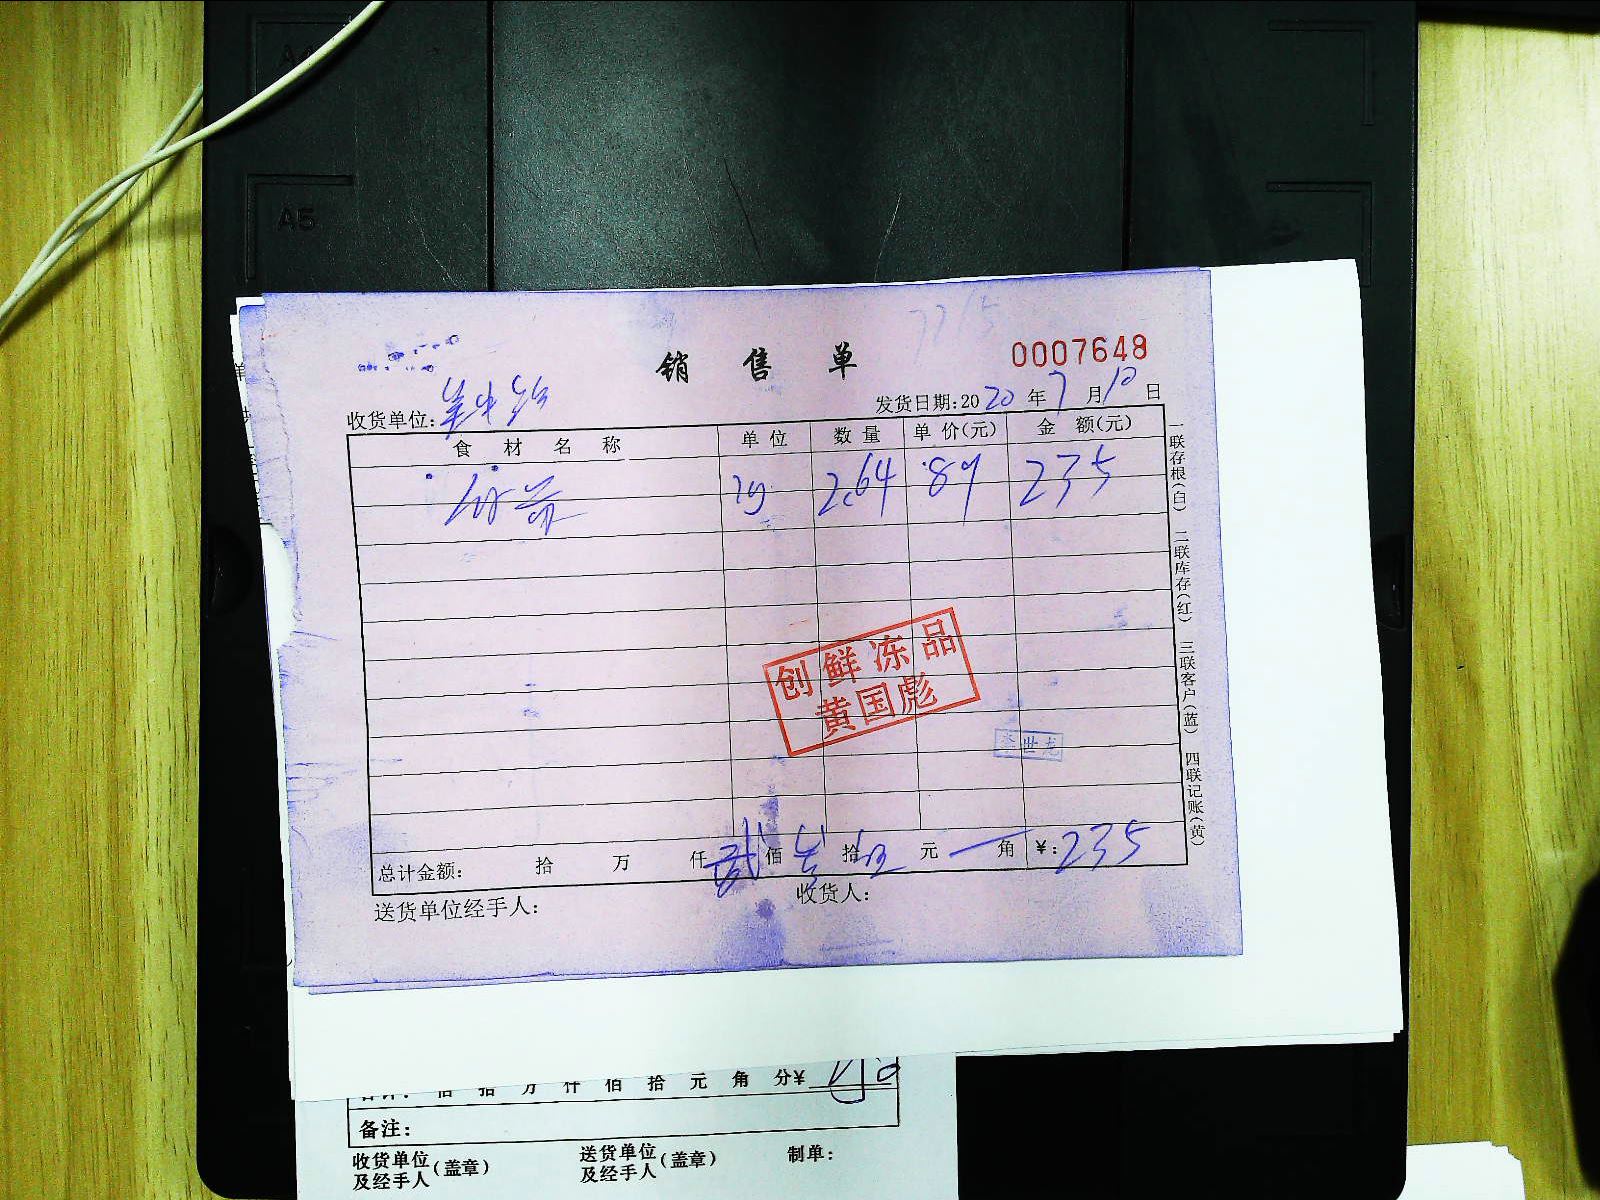 A4
A5
销售单
0007648
收货单位:
发货日期:2020年7月10日
食材名称 单位 数量 单价(元) 金额(元)
2.64 89 235
一联存根(白) 二联库存(红) 三联客户(蓝) 四联记账(黄)
创鲜冻品
黄国彪
李世龙
总计金额: 拾 万 仟 贰 佰 叁 拾 伍 元 角 ¥:235
送货单位经手人: 收货人:
佰 拾 万 仟 佰 拾 元 角 分¥
备注:
收货单位及经手人(盖章) 送货单位及经手人(盖章) 制单: